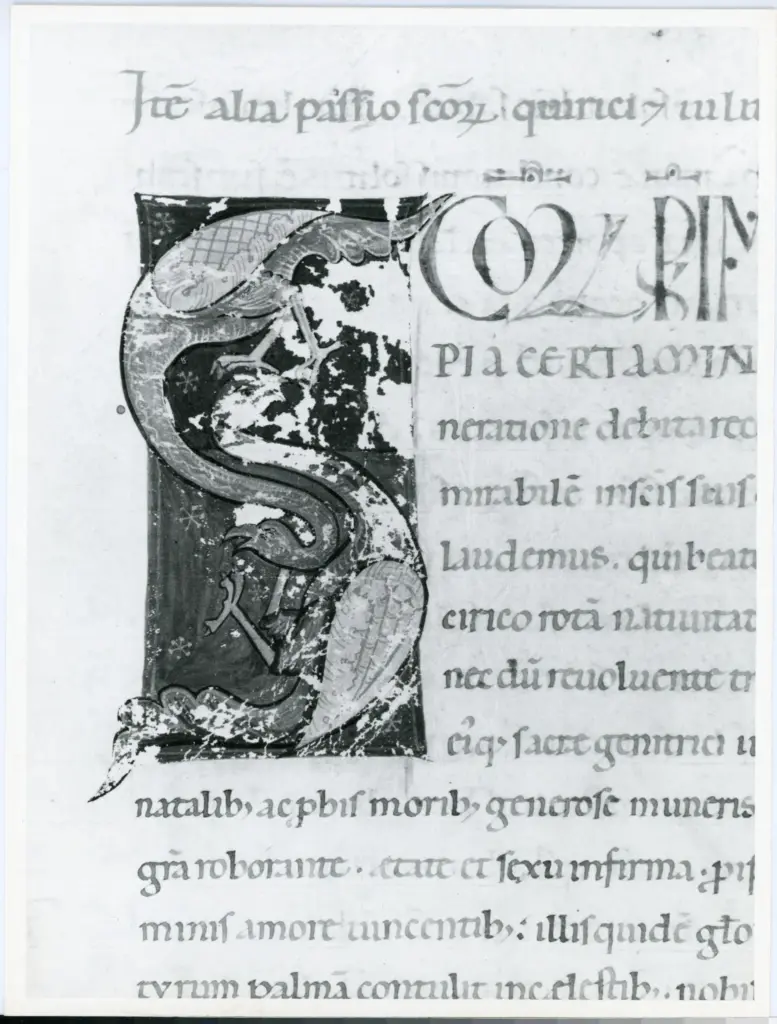 Itē alia passio scōꝝ quirici ⁊ iuli
SCOꝜ PRIM
PIA CERTAMIN
neratione debita rec
mirabilē in scīs suis
laudemus. qui beati
cirico rotā natiuitat
nec dū reuoluente tr
eiq; sacre genitrici u
natalib; ac ꝓbis morib; generose muneris
grā roborante. etate et sexu infirma. ꝑ
minis amore uincentib; illis quidē glo
tyrum palmā contulit in celestib;. nobis